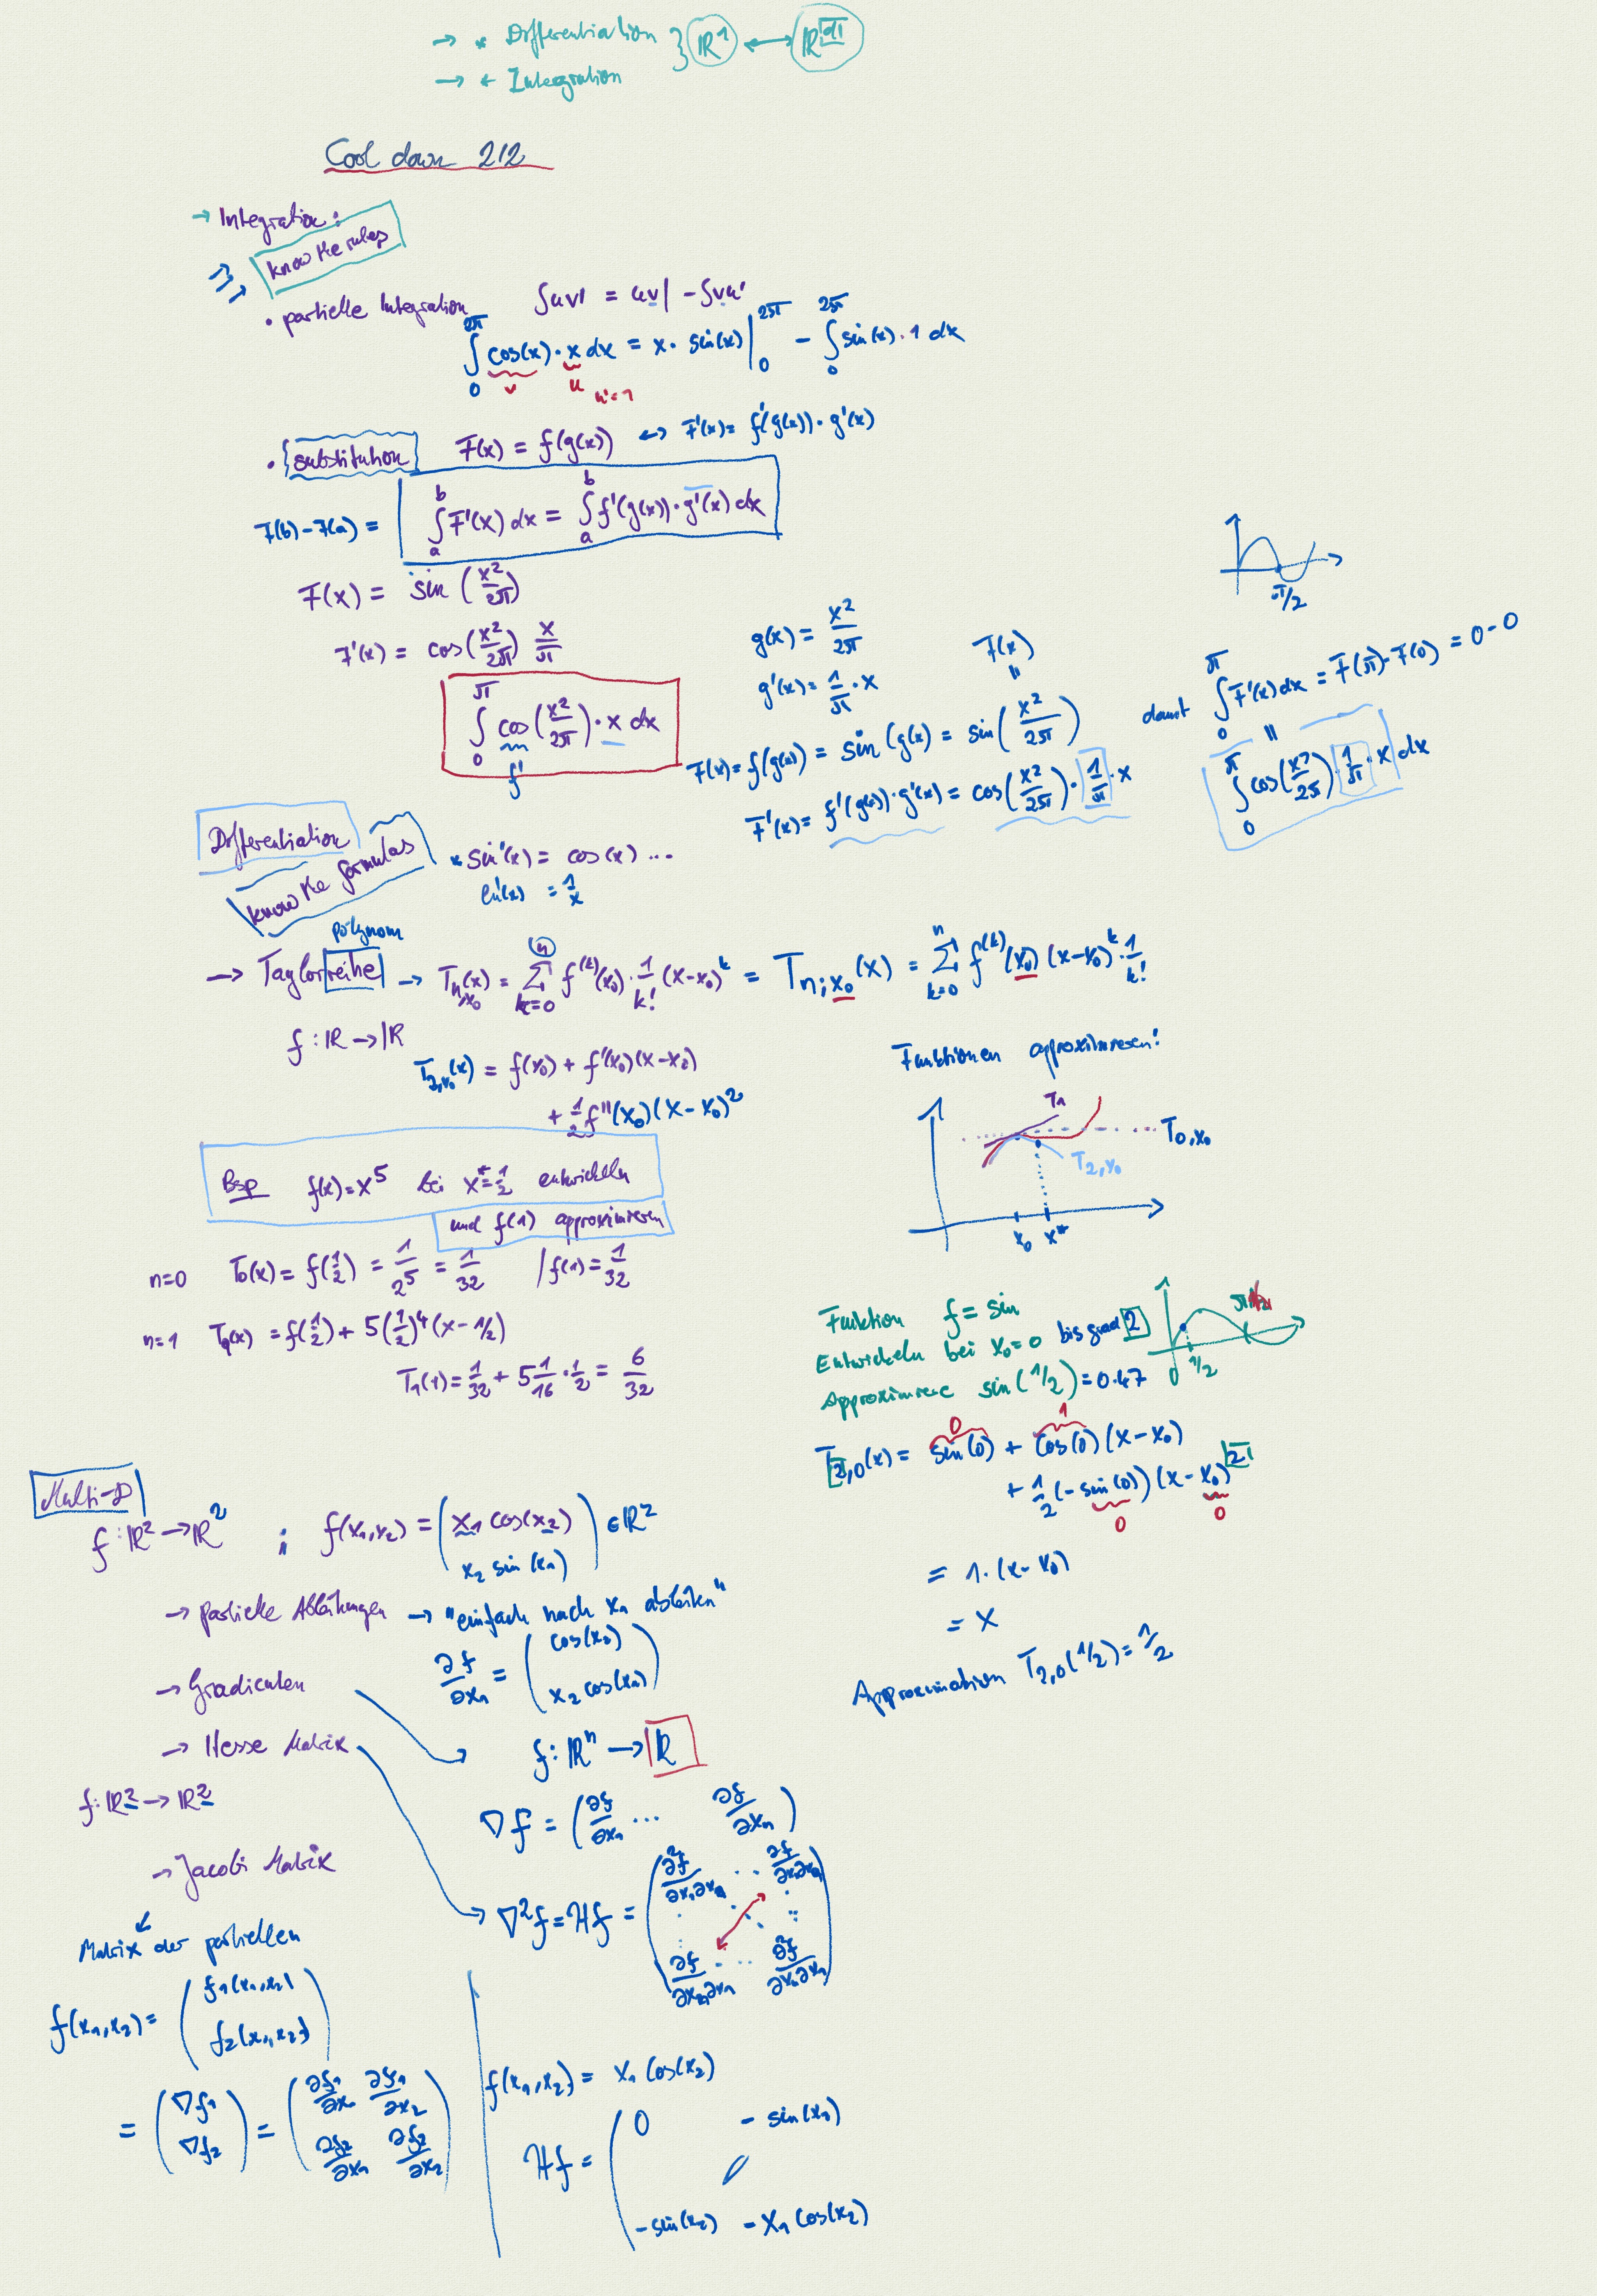 → * Differentiation } ℝ¹ ↔ ℝᵈ
→ * Integration
Cool down 2/2
→ Integration:
know the rules
• partielle Integration ∫uv' = uv| - ∫vu'
∫₀^{2π} cos(x) · x dx = x · sin(x) |₀^{2π} - ∫₀^{2π} sin(x) · 1 dx
v u u'=1
• substitution F(x) = f(g(x)) ↔ F'(x) = f'(g(x)) · g'(x)
F(b) - F(a) = ∫ₐᵇ F'(x) dx = ∫ₐᵇ f'(g(x)) · g'(x) dx
F(x) = sin (x²/2π)
F'(x) = cos(x²/2π) x/π
∫₀^π cos(x²/2π) · x dx
f'
g(x) = x²/2π
g'(x) = 1/π · x
F(x)
=
F(x) = f(g(x)) = sin(g(x) = sin(x²/2π)
F'(x) = f'(g(x)) · g'(x) = cos(x²/2π) · 1/π · x
π/2
damit ∫₀^π F'(x) dx = F(π) - F(0) = 0 - 0
=
∫₀^π cos(x²/2π) · 1/π · x dx
Differentiation
know the formulas
* sin'(x) = cos(x) ...
ln'(x) = 1/x
polynom
→ Taylorreihe → T_{n,x₀}(x) = Σ_{k=0}^{n} f^{(k)}(x₀) · 1/k! (x-x₀)^k = T_{n;x₀}(x) = Σ_{k=0}^{n} f^{(k)}(x₀) (x-x₀)^k · 1/k!
f : ℝ → ℝ
T_{2,x₀}(x) = f(x₀) + f'(x₀)(x-x₀)
+ 1/2 f''(x₀)(x-x₀)²
Bsp f(x) = x⁵ bei x* = 1/2 entwickeln
und f(1) approximieren
n=0 T₀(x) = f(1/2) = 1/2⁵ = 1/32 / f(1) = 1/32
n=1 T₁(x) = f(1/2) + 5(1/2)⁴(x - 1/2)
T₁(1) = 1/32 + 5 1/16 · 1/2 = 6/32
Funktionen approximieren!
T₁
T_{0,x₀}
T_{2,x₀}
x₀ x*
Funktion f = sin
Entwickeln bei x₀ = 0 bis grad 2
Approximiere sin(1/2) = 0.47
0 1/2
0 1
T_{2,0}(x) = sin(0) + cos(0)(x-x₀)
+ 1/2 (-sin(0))(x-x₀)²
0 0
= 1·(x-x₀)
= x
Approximation T_{2,0}(1/2) = 1/2
Multi-D
f : ℝ² → ℝ² ; f(x₁,x₂) = ( x₁ cos(x₂)
x₂ sin(x₁) ) ∈ ℝ²
→ partielle Ableitungen → "einfach nach x₁ ableiten"
∂f/∂x₁ = ( cos(x₂)
x₂ cos(x₁) )
→ Gradienten
→ Hesse Matrix
f: ℝⁿ → ℝ
f: ℝ² → ℝ²
∇f = (∂f/∂x₁ ... ∂f/∂xₙ)
→ Jacobi Matrix
∇²f = Hf = ( ∂²f/∂x₁∂x₁ ... ∂f/∂x₁∂xₙ
∂f/∂xₙ∂x₁ ... ∂²f/∂xₙ∂xₙ )
Matrix der partiellen
f(x₁,x₂) = ( f₁(x₁,x₂)
f₂(x₁,x₂) )
= ( ∇f₁ ∇f₂ ) = ( ∂f₁/∂x₁ ∂f₁/∂x₂
∂f₂/∂x₁ ∂f₂/∂x₂ )
f(x₁,x₂) = x₁ cos(x₂)
Hf = ( 0 - sin(x₂)
- sin(x₂) - x₁ cos(x₂)